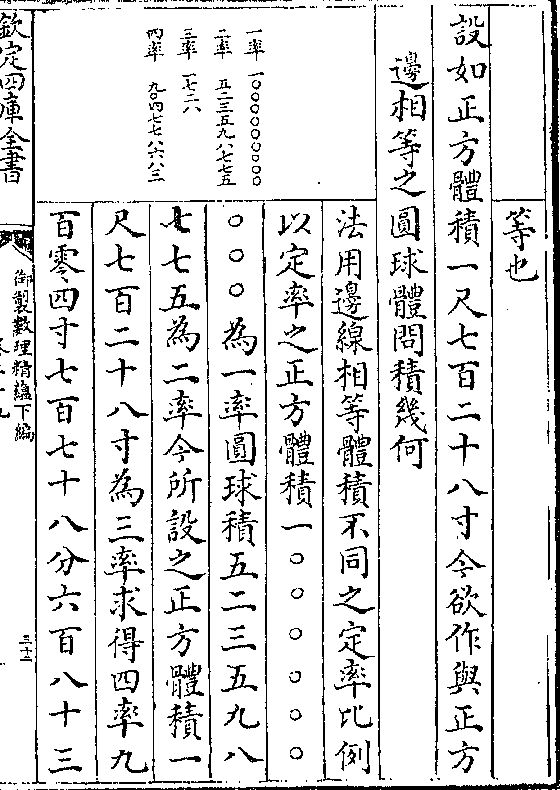 等也
設如正方體積一尺七百二十八寸今欲作與正方
邊相等之圓球體問積幾何
法用邊線相等體積不同之定率比例
以定率之正方體積一〇〇〇〇〇
〇〇〇為一率圓球積五二三五九八
七七五為二率今所設之正方體積一
尺七百二十八寸為三率求得四率九
百零四寸七百七十八分六百八十三
一率 一〇〇〇〇〇〇〇〇〇
二率 五二三五九八七七五
三率 一七二八
四率 九〇四七七八六八三
欽定四庫全書
御製數理精蘊下編
三十二